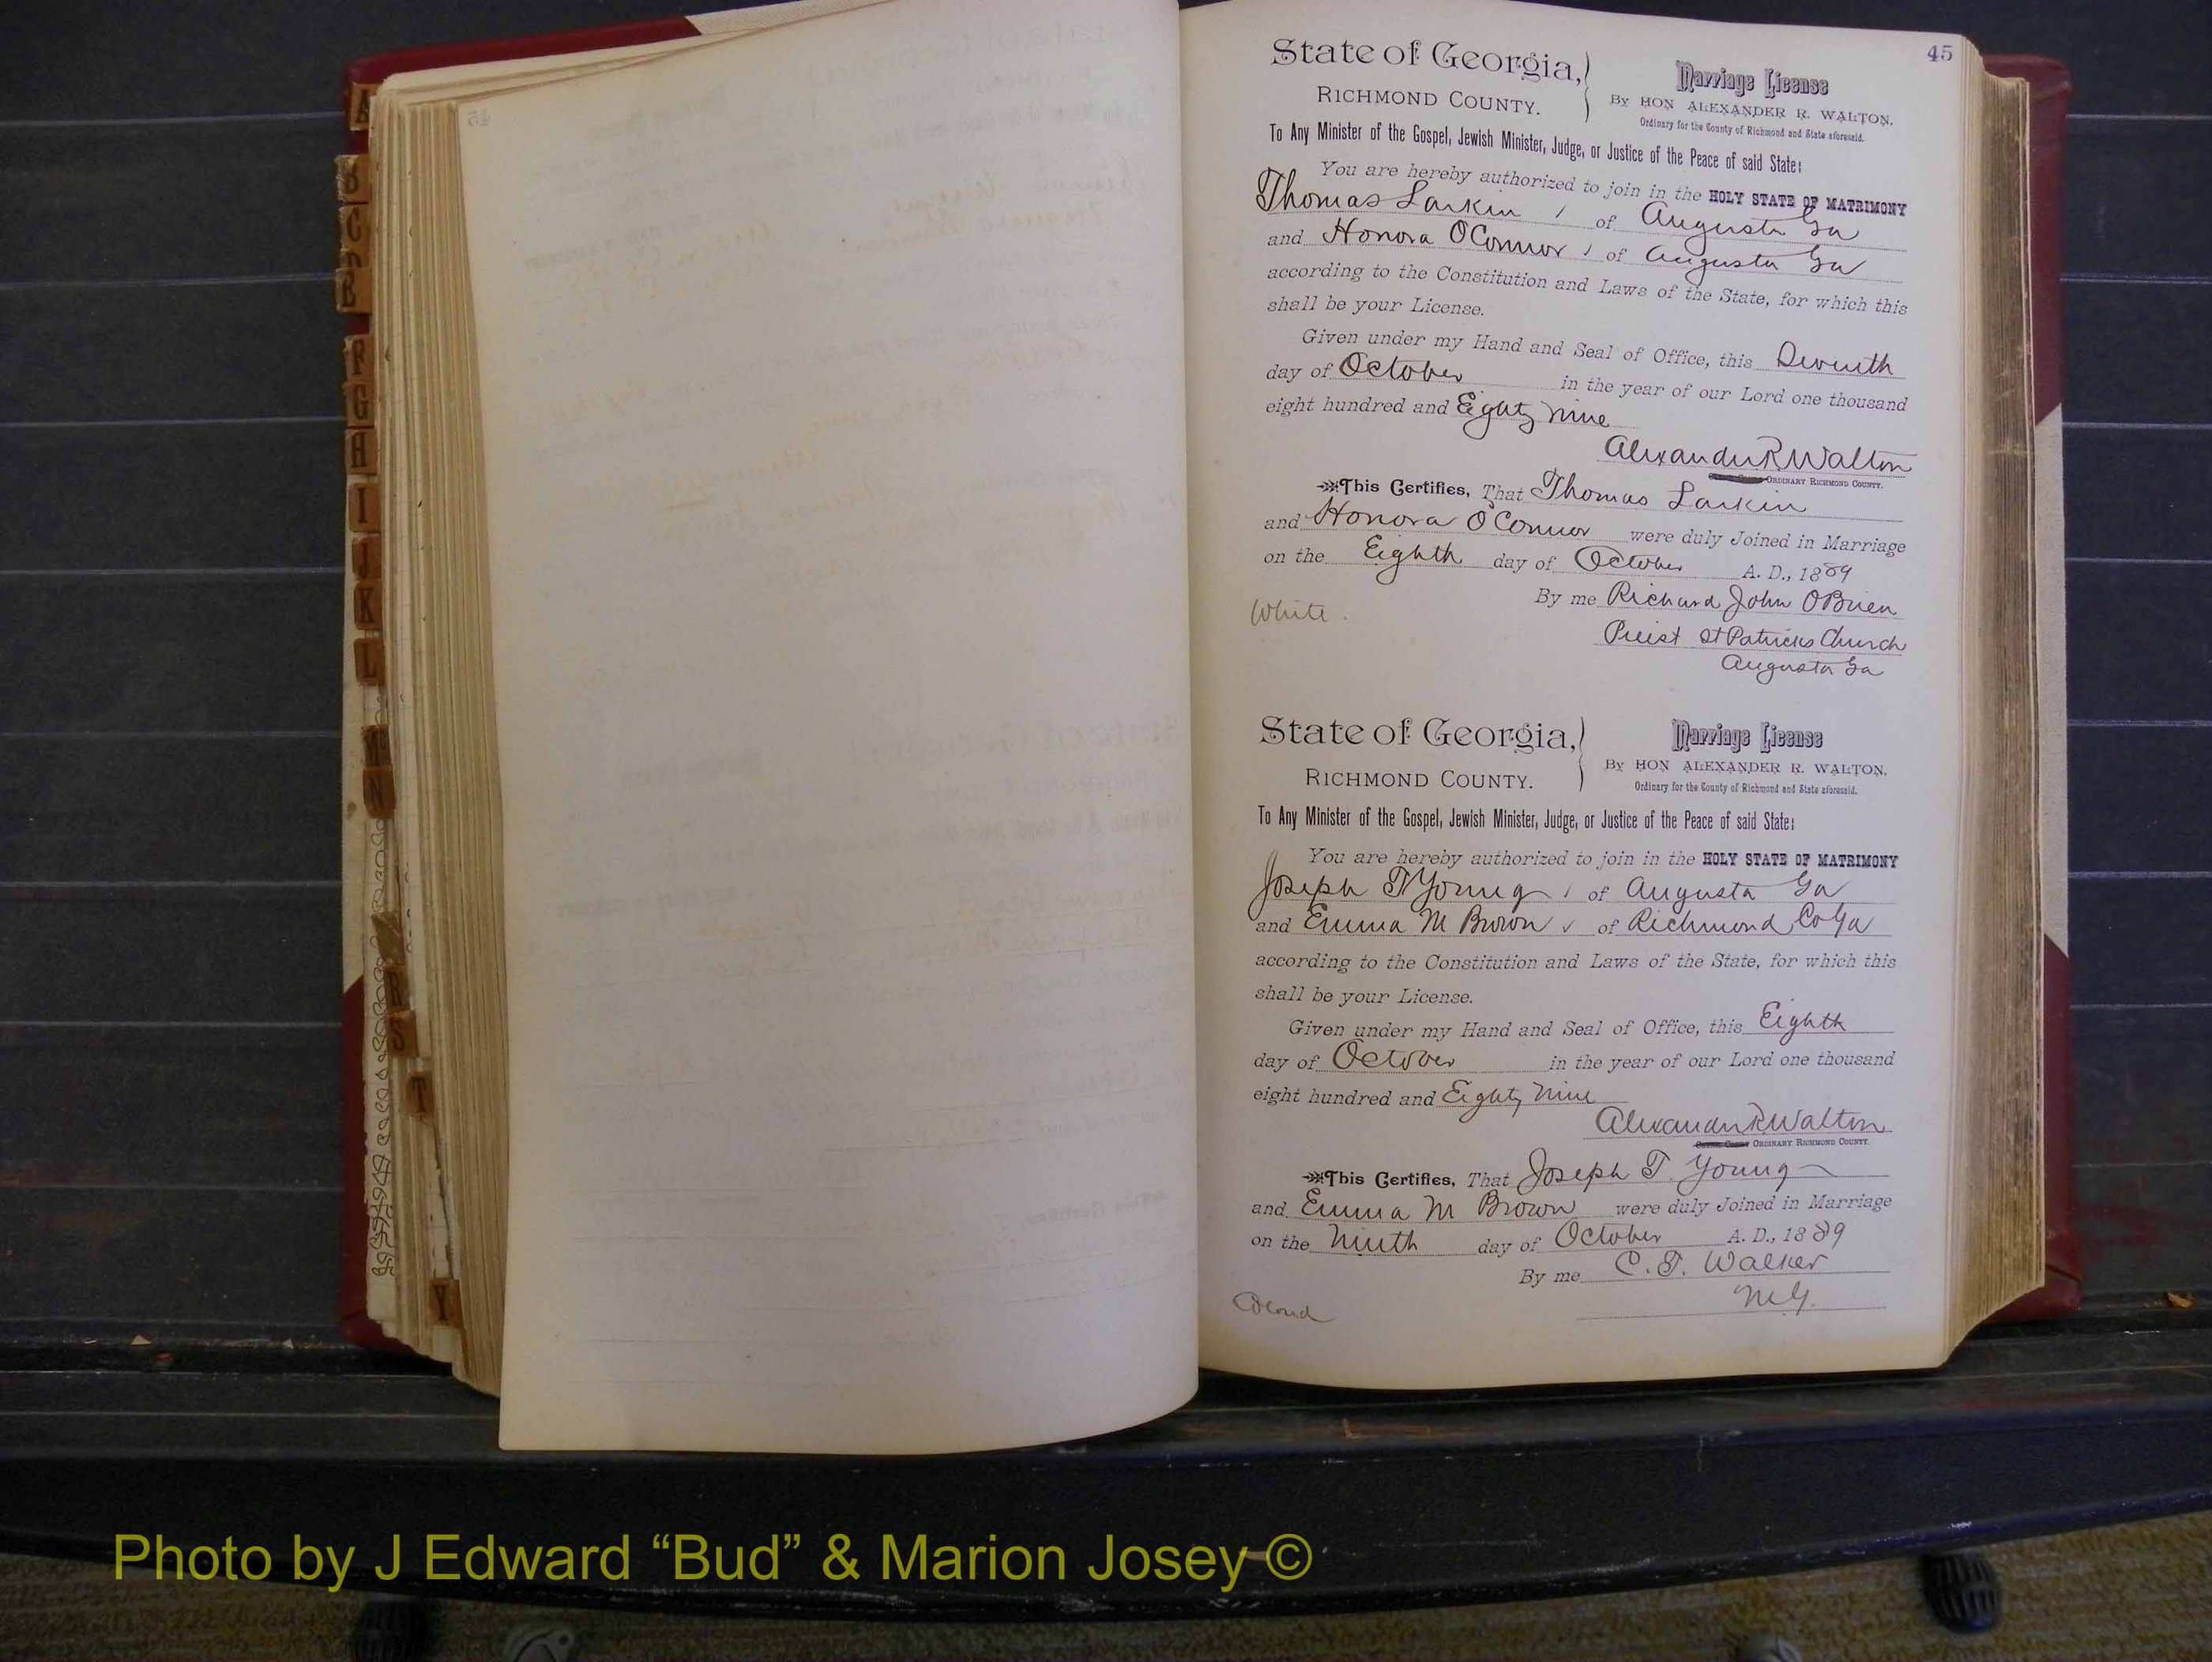 45
State of Georgia,
RICHMOND COUNTY.
Marriage License
By HON ALEXANDER R. WALTON,
Ordinary for the County of Richmond and State aforesaid.
To Any Minister of the Gospel, Jewish Minister, Judge, or Justice of the Peace of said State:
You are hereby authorized to join in the HOLY STATE OF MATRIMONY
Thomas Larkin of Augusta Ga
and Honora O'Connor of Augusta Ga
according to the Constitution and Laws of the State, for which this
shall be your License.
Given under my Hand and Seal of Office, this Seventh
day of October in the year of our Lord one thousand
eight hundred and Eighty Nine
Alexander R Walton
ORDINARY RICHMOND COUNTY.
This Certifies, That Thomas Larkin
and Honora O'Connor were duly Joined in Marriage
on the Eighth day of October A. D., 1889
By me Richard John OBrien
White.
Preist St Patricks Church
Augusta Ga
State of Georgia,
RICHMOND COUNTY.
Marriage License
By HON ALEXANDER R. WALTON,
Ordinary for the County of Richmond and State aforesaid.
To Any Minister of the Gospel, Jewish Minister, Judge, or Justice of the Peace of said State:
You are hereby authorized to join in the HOLY STATE OF MATRIMONY
Joseph T Young of Augusta Ga
and Emma M Brown of Richmond Co Ga
according to the Constitution and Laws of the State, for which this
shall be your License.
Given under my Hand and Seal of Office, this Eighth
day of October in the year of our Lord one thousand
eight hundred and Eighty Nine
Alexander R Walton
ORDINARY RICHMOND COUNTY.
This Certifies, That Joseph T. Young
and Emma M Brown were duly Joined in Marriage
on the Ninth day of October A. D., 1889
By me C. T. Walker
M G.
Colord
Photo by J Edward “Bud” & Marion Josey ©